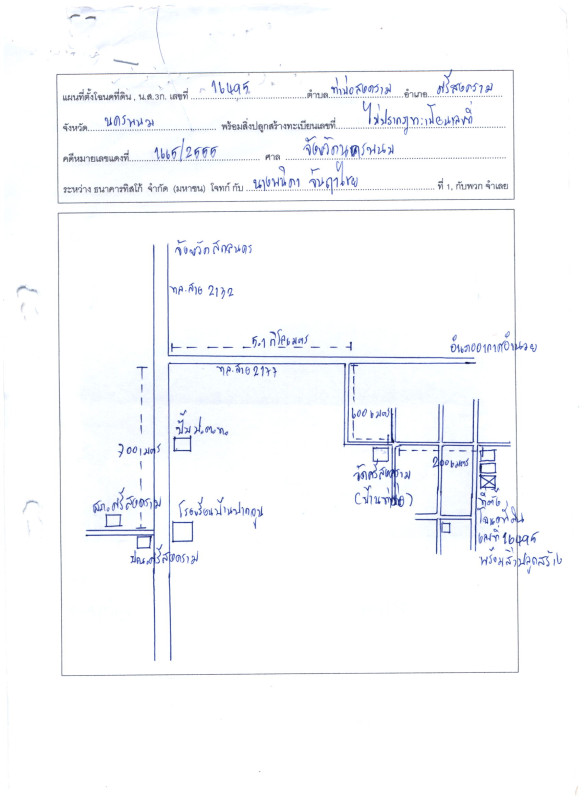 แผนที่ตั้งโฉนดที่ดิน , น.ส.3ก. เลขที่ 16495 ตำบล ท่าบ่อสงคราม อำเภอ ศรีสงคราม
จังหวัด นครพนม พร้อมสิ่งปลูกสร้างทะเบียนเลขที่ ไม่ปรากฏทะเบียนเลขที่
คดีหมายเลขแดงที่ 1665/2555 ศาล จังหวัดนครพนม
ระหว่าง ธนาคารทิสโก้ จำกัด (มหาชน) โจทก์ กับ นางพนิดา จันฤาไชย ที่ 1, กับพวก จำเลย
จังหวัดสกลนคร
ทล.สาย 2132
5.1 กิโลเมตร
อำเภออากาศอำนวย
ทล.สาย 2177
600 เมตร
ปั๊ม ป.ต.ท.
700 เมตร
200 เมตร
วัดศรีสงคราม
(บ้านท่าบ่อ)
สภ.ศรีสงคราม
โรงเรียนบ้านปากอูน
ที่ตั้ง
โฉนดที่ดิน
เลขที่ 16495
พร้อมสิ่งปลูกสร้าง
ปณ.ศรีสงคราม